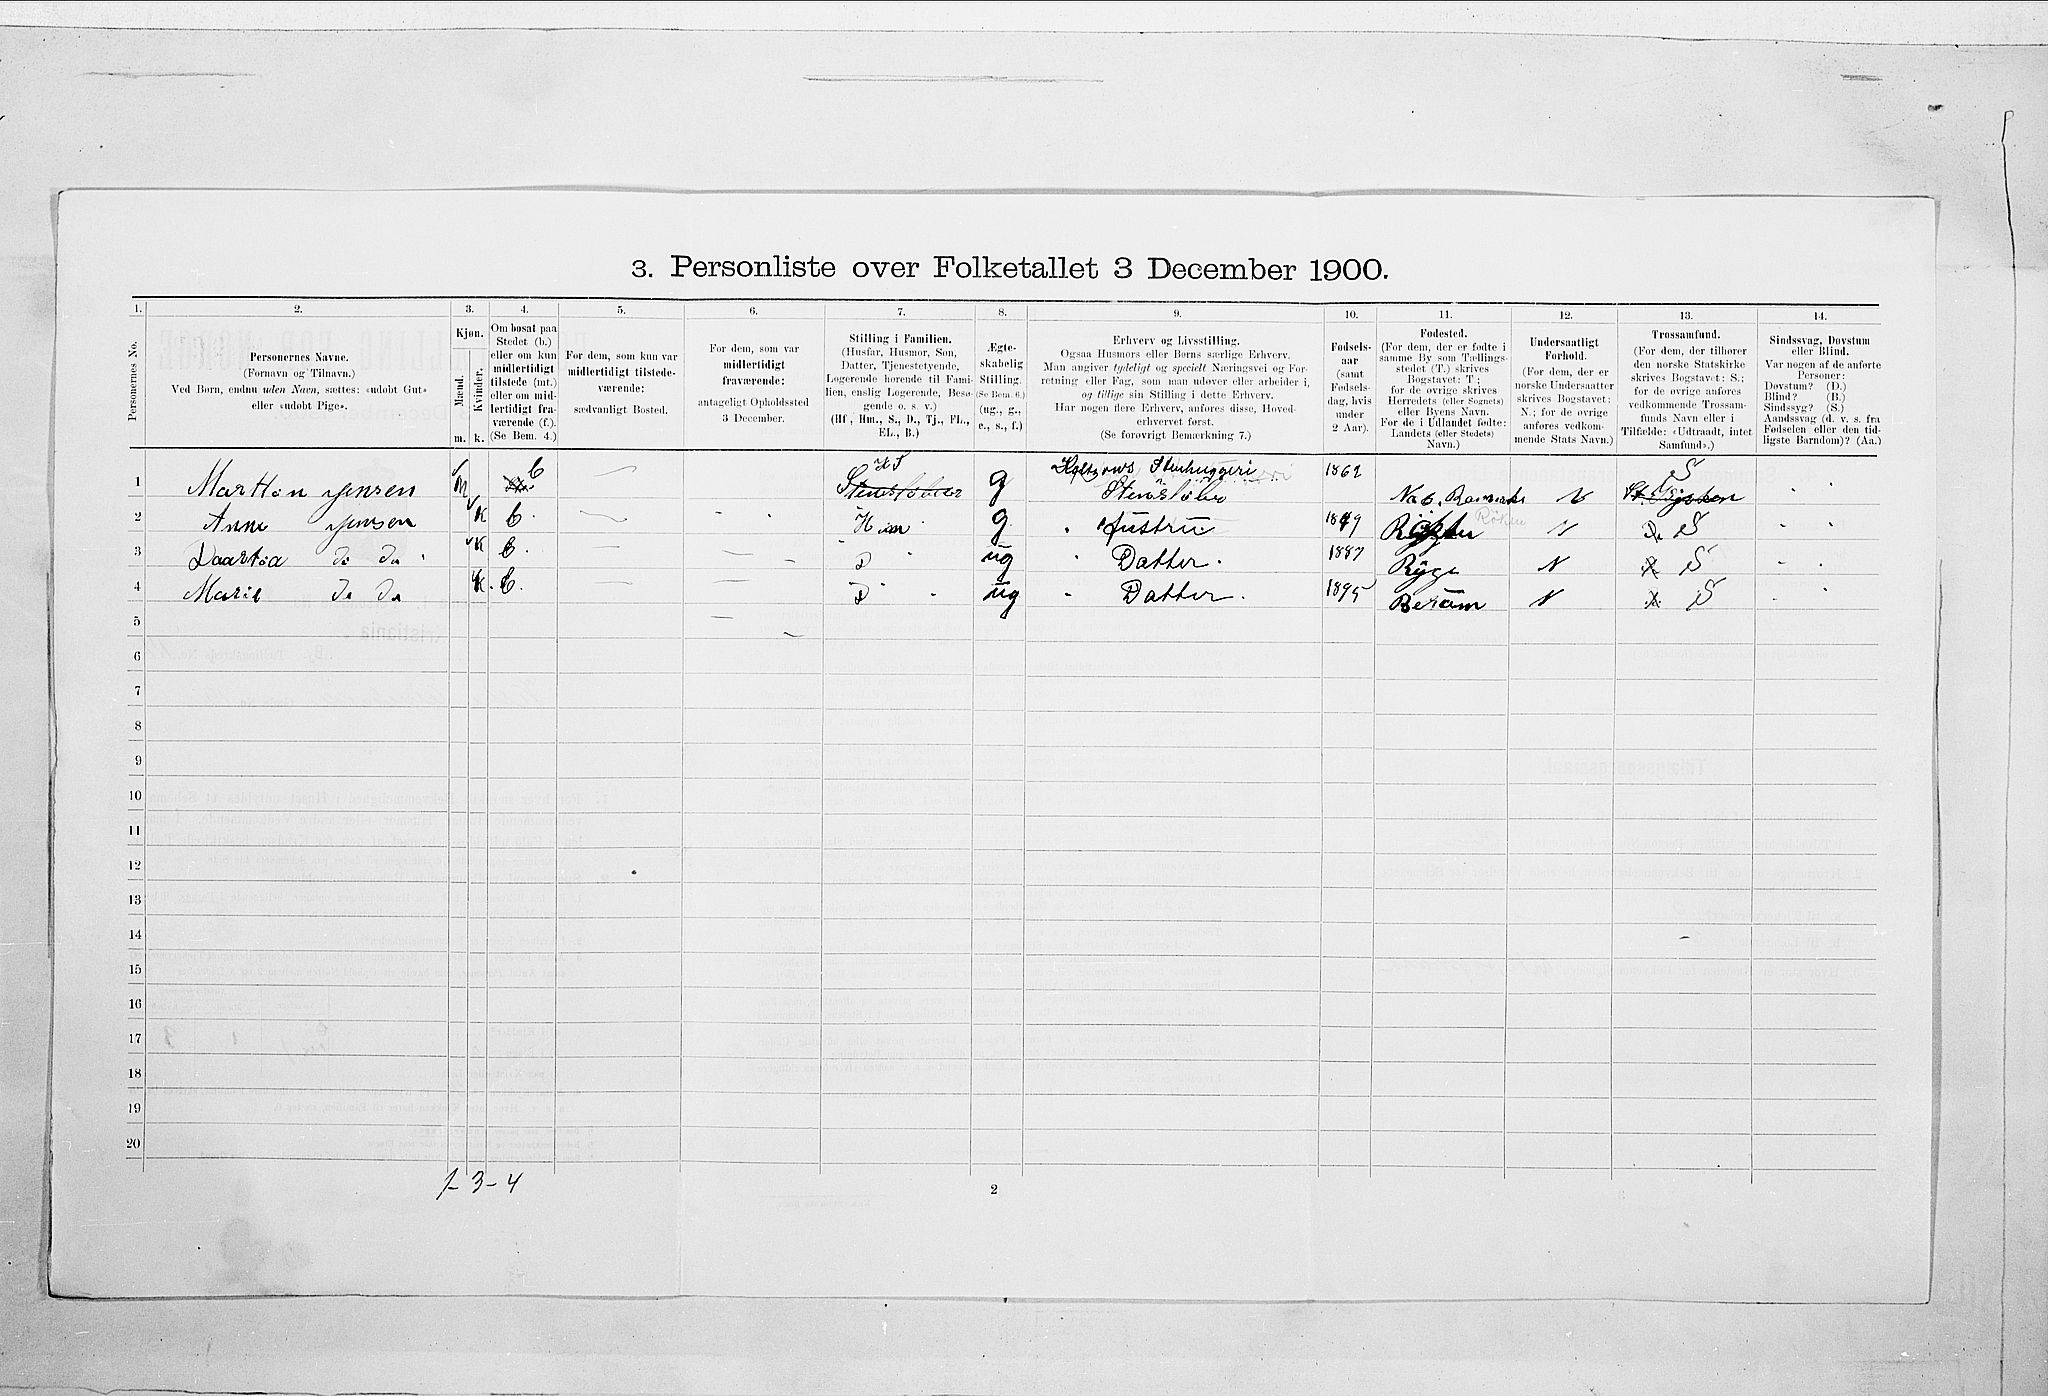 3. Personliste over Folketallet 3 December 1900.
1. 2. 3. 4. 5. 6. 7. 8. 9. 10. 11. 12. 13. 14.
Personernes No.
Personernes Navne.
(Fornavn og Tilnavn.)
Ved Børn, endnu uden Navn, sættes: «udøbt Gut»
eller «udøbt Pige».
Kjøn.
Mænd.
Kvinder.
m. k.
Om bosat paa
Stedet (b.)
eller om kun
midlertidigt
tilstede (mt.)
eller om mid-
lertidigt fra-
værende (f.).
(Se Bem. 4.)
For dem, som kun var
midlertidigt tilstede-
værende:
sædvanligt Bosted.
For dem, som var
midlertidigt
fraværende:
antageligt Opholdssted
3 December.
Stilling i Familien.
(Husfar, Husmor, Søn,
Datter, Tjenestetyende,
Logerende hørende til Fami-
lien, enslig Logerende, Besø-
gende o. s. v.)
(Hf., Hm., S., D., Tj., FL.,
EL., B.)
Ægte-
skabelig
Stilling.
(Se Bem. 6.)
(ug., g.,
e., s., f.)
Erhverv og Livsstilling.
Ogsaa Husmors eller Børns særlige Erhverv.
Man angiver tydeligt og specielt Næringsvei og For-
retning eller Fag, som man udøver eller arbeider i,
og tillige sin Stilling i dette Erhverv.
Har nogen flere Erhverv, anføres disse, Hoved-
erhvervet først.
(Se forøvrigt Bemærkning 7.)
Fødsels-
aar
(samt
Fødsels-
dag, hvis
under
2 Aar).
Fødested.
(For dem, der er fødte i
samme By som Tællings-
stedet (T.) skrives
Bogstavet: T;
for de øvrige skrives
Herredets (eller Sognets)
eller Byens Navn.
For de i Udlandet fødte:
Landets (eller Stedets)
Navn.)
Undersaatligt
Forhold.
(For dem, der er
norske Undersaatter
skrives Bogstavet:
N.; for de øvrige
anføres vedkom-
mende Stats Navn.)
Trossamfund.
(For dem, der tilhører
den norske Statskirke
skrives Bogstavet: S.;
for de øvrige anføres
vedkommende Trossam-
funds Navn eller i
Tilfælde: «Udtraadt, intet
Samfund».)
Sindssvag, Døvstum
eller Blind.
Var nogen af de anførte
Personer:
Døvstum? (D.)
Blind? (B.)
Sindssyg? (S.)
Aandssvag (d. v. s. fra
Fødselen eller den tid-
ligste Barndom)? (Aa.)
1 Marthon Jensen m b Hf g Stenhuggeri Stensliber 1862 N S
2 Anne Jensen K b. Hm g Hustru N Do S
3 do do K b. D ug Datter. 1887 Ryge N S
4 Marie do do K. b. D ug Datter. 1895 Berum N S
5
6
7
8
9
10
11
12
13
14
15
16
17
18
19
20
1-3-4
2